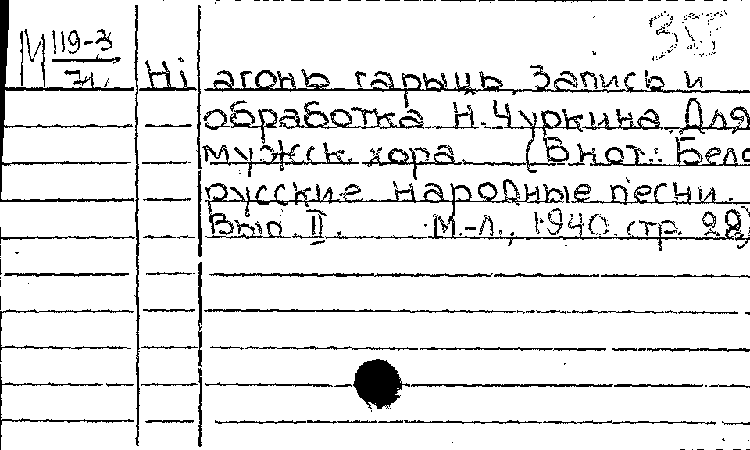 М 119-3
71. Ні агонь гарыць. Запись и
обработка Н. Чуркина Для
мужск. хора. (В нот.: Бело
русские народные песни.
Вып. II. М.-Л., 1940 стр. 28)